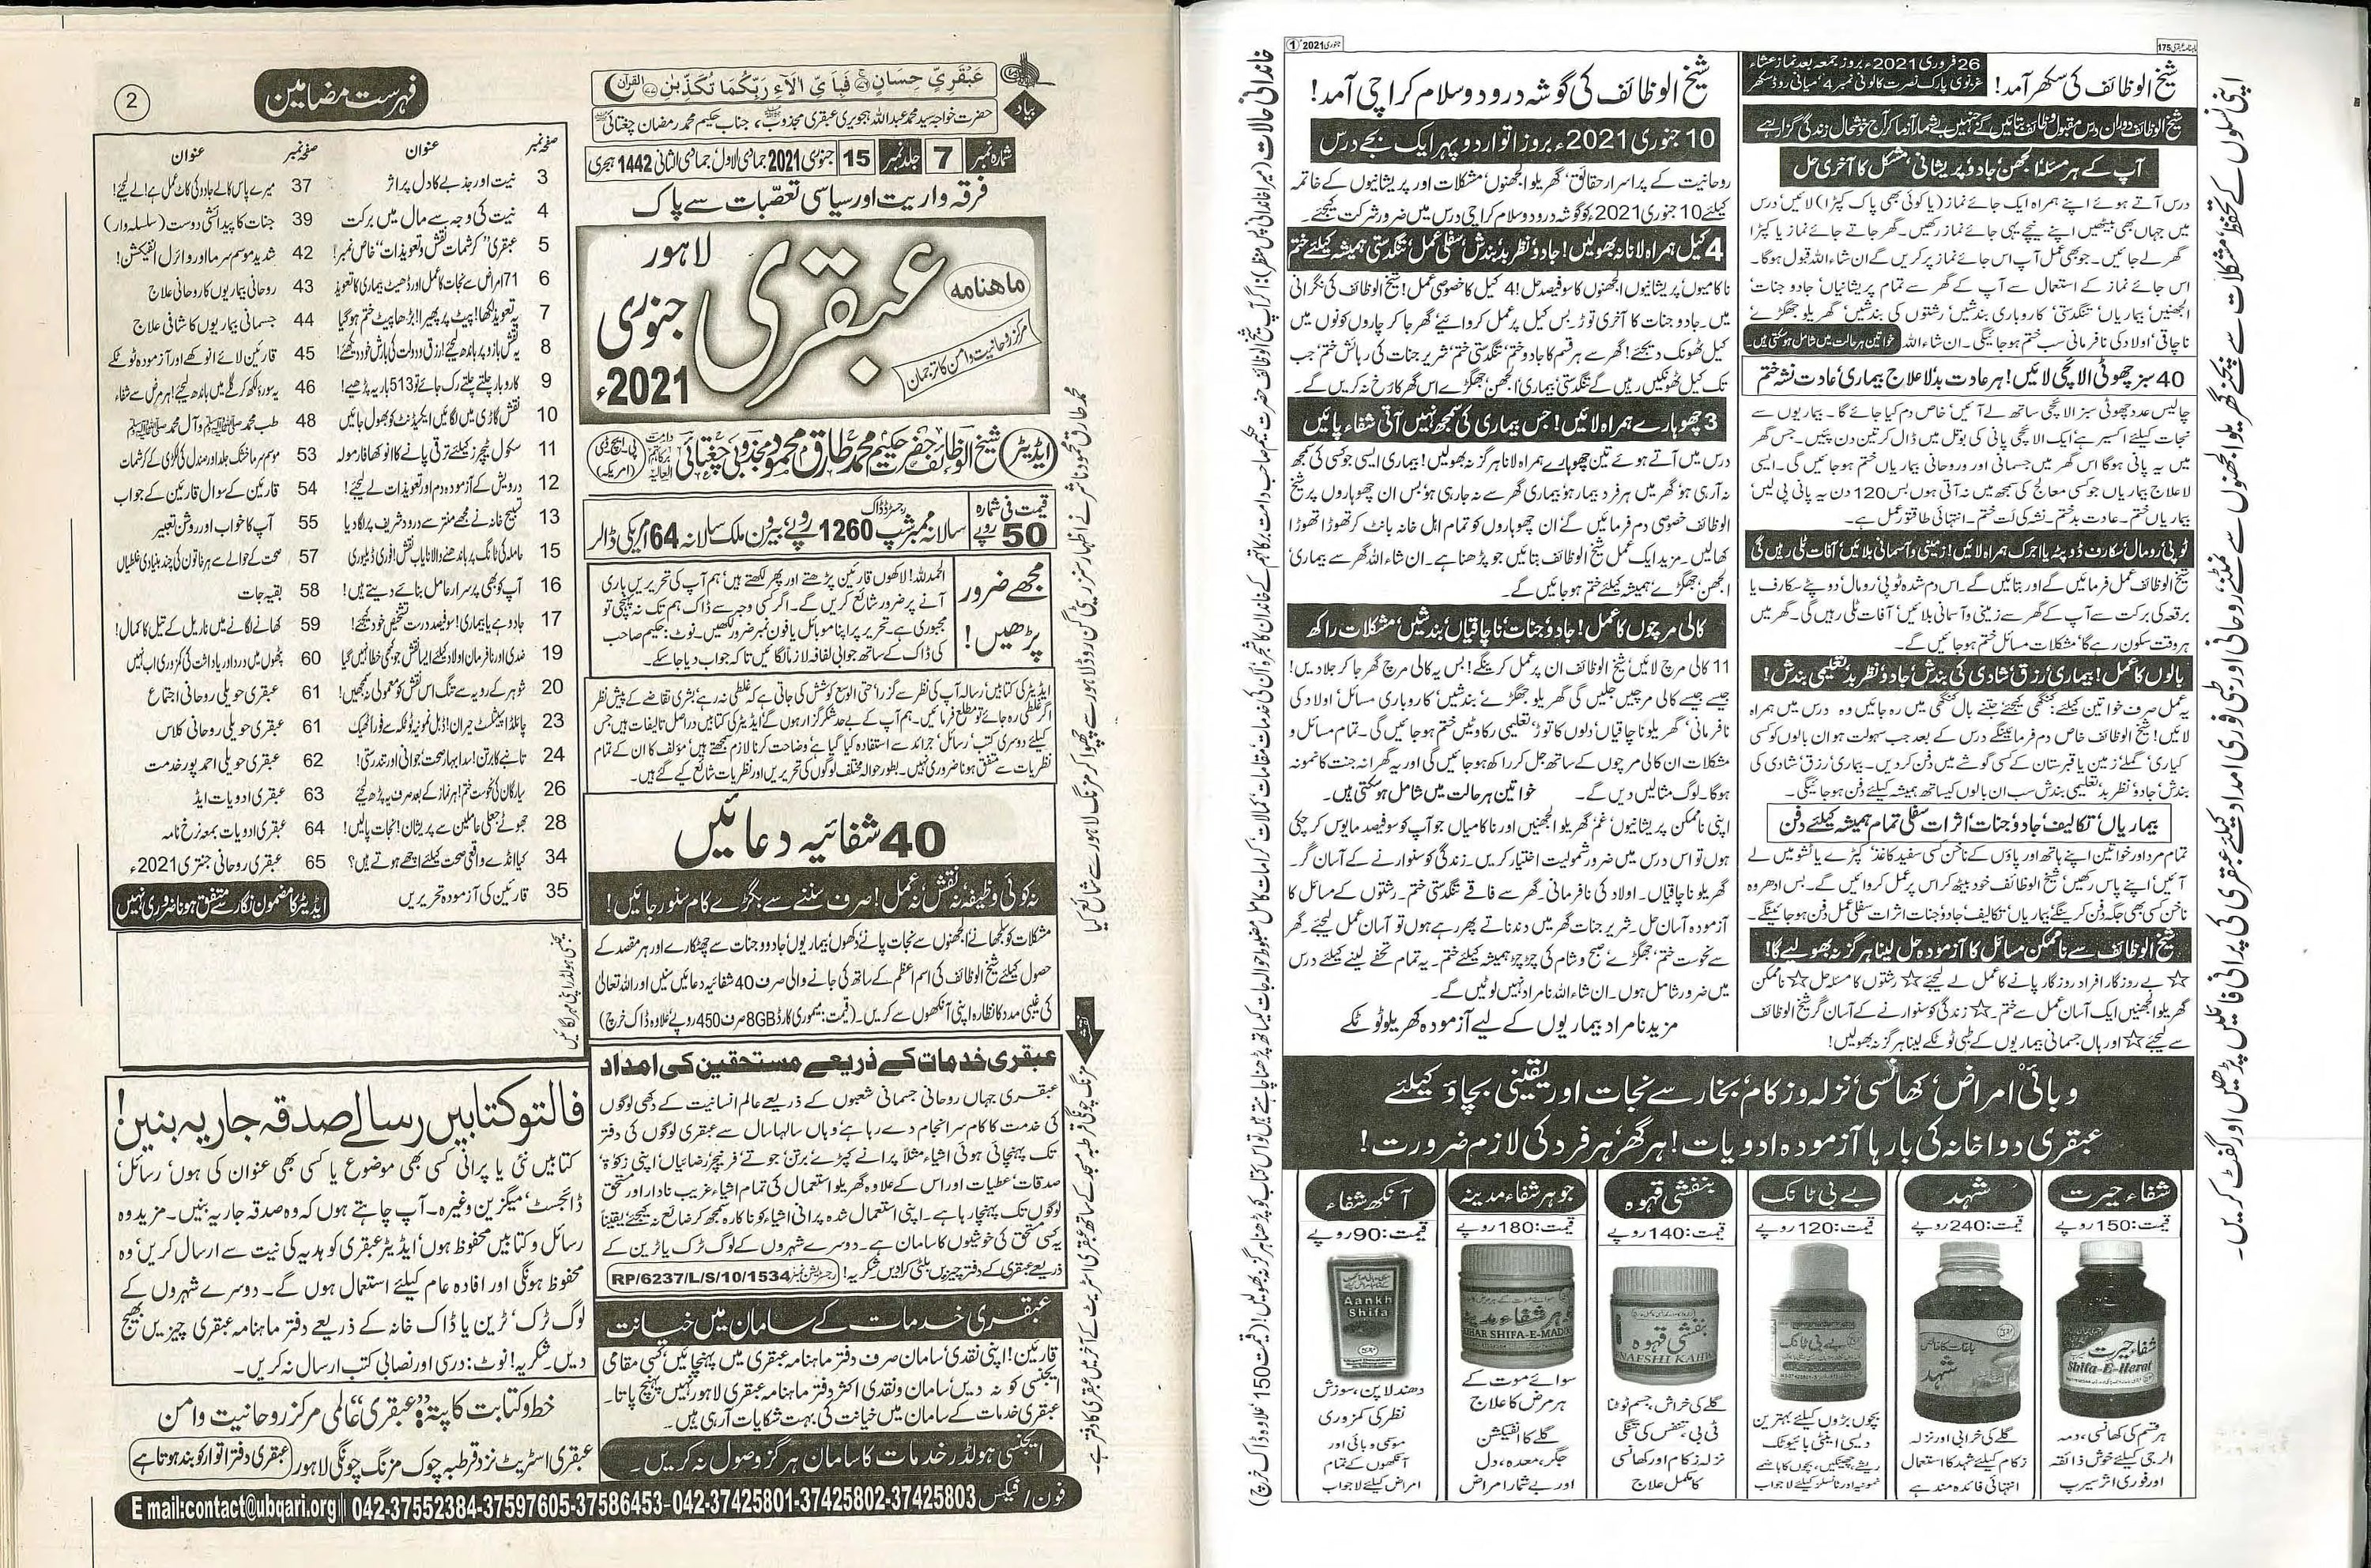 ماہنامہ عبقری 175
جنوری 2021ء 1
شیخ الوظائف کی سکھر آمد!
26 فروری 2021ء بروز جمعہ بعد نماز عشاء
غزنوی پارک نصرت کالونی نمبر 4 میانی روڈ سکھر
شیخ الوظائف دوران درس مقبول وظائف بتائیں گے جنہیں بے شمار آزما کر آج خوشحال زندگی گزار رہے
آپ کے ہر مسئلہ، الجھن، جادو، پریشانی، مشکل کا آخری حل
درس آتے ہوئے اپنے ہمراہ ایک جائے نماز (یا کوئی بھی پاک کپڑا) لائیں‘ درس
میں جہاں بھی بیٹھیں اپنے نیچے یہی جائے نماز رکھیں۔ گھر جاتے جائے نماز یا کپڑا
گھر لے جائیں۔ جو بھی عمل آپ اس جائے نماز پر کریں گے ان شاء اللہ قبول ہوگا۔
اس جائے نماز کے استعمال سے آپ کے گھر سے تمام پریشانیاں‘ جادو جنات‘
الجھنیں‘ بیماریاں‘ تنگدستی‘ کاروباری بندشیں‘ رشتوں کی بندشیں‘ گھریلو جھگڑے‘
ناچاقی‘ اولاد کی نافرمانی سب ختم ہو جائیگی۔ ان شاء اللہ خواتین ہر حالت میں شامل ہوسکتی ہیں۔
40 سبز چھوٹی الائچی لائیں! ہر عادت بد‘ لاعلاج بیماری‘ عادت نشہ ختم
چالیس عدد چھوٹی سبز الائچی ساتھ لے آئیں‘ خاص دم کیا جائے گا۔ بیماریوں سے
نجات کیلئے اکسیر ہے‘ ایک الائچی پانی کی بوتل میں ڈال کر تین دن پئیں۔ جس گھر
میں یہ پانی ہوگا اس گھر میں جسمانی اور روحانی بیماریاں ختم ہوجائیں گی۔ ایسی
لاعلاج بیماریاں جو کسی معالج کی سمجھ میں نہ آتی ہوں بس 120 دن یہ پانی پی لیں‘
بیماریاں ختم۔ عادت بد ختم۔ نشہ کی لت ختم۔ انتہائی طاقتور عمل ہے۔
ٹوپی‘ رومال‘ سکارف‘ ڈوپٹہ یا اجرک ہمراہ لائیں! زمینی و آسمانی بلائیں‘ آفات ٹلی رہیں گی
شیخ الوظائف عمل فرمائیں گے اور بتائیں گے۔ اس دم شدہ ٹوپی‘ رومال‘ دوپٹے‘ سکارف یا
برقعہ کی برکت سے آپ کے گھر سے زمینی و آسمانی بلائیں‘ آفات ٹلی رہیں گی۔ گھر میں
ہر وقت سکون رہے گا‘ مشکلات مسائل ختم ہوجائیں گے۔
بالوں کا عمل! بیماری‘ رزق‘ شادی کی بندش‘ جادو‘ نظر بد‘ تعلیمی بندش!
یہ عمل صرف خواتین کیلئے: کنگھی کیجئے‘ جتنے بال کنگھی میں رہ جائیں وہ درس میں ہمراہ
لائیں! شیخ الوظائف خاص دم فرمائینگے درس کے بعد جب سہولت ہو ان بالوں کو کسی
کیاری‘ گملے‘ زمین یا قبرستان کے کسی گوشے میں دفن کردیں۔ بیماری‘ رزق‘ شادی کی
بندش‘ جادو‘ نظر بد‘ تعلیمی بندش سب ان بالوں کیساتھ ہمیشہ کیلئے دفن ہوجائیگی۔
بیماریاں‘ تکالیف‘ جادو‘ جنات‘ اثرات سفلی تمام ہمیشہ کیلئے دفن
تمام مرد اور خواتین اپنے ہاتھ اور پاؤں کے ناخن کسی سفید کاغذ‘ کپڑے یا ٹشو میں لے
آئیں‘ اپنے پاس رکھیں‘ شیخ الوظائف خود بیٹھ کر اس پر عمل کروائیں گے۔ بس ادھر وہ
ناخن کسی بھی جگہ دفن کرینگے‘ بیماریاں‘ تکالیف‘ جادو‘ جنات‘ اثرات سفلی عمل دفن ہوجائینگے۔
شیخ الوظائف سے ناممکن مسائل کا آزمودہ حل لینا ہرگز نہ بھولیے گا!
☆ بے روزگار افراد روزگار پانے کا عمل لے لیجئے ☆ رشتوں کا مسئلہ حل ☆ ناممکن
گھریلو الجھنیں ایک آسان عمل سے ختم۔ ☆ زندگی کو سنوارنے کے آسان گر شیخ الوظائف
سے لیجئے ☆ اور ہاں جسمانی بیماریوں کے طبی ٹوٹکے لینا ہرگز نہ بھولیں!
شیخ الوظائف کی گوشہ درود و سلام کراچی آمد!
10 جنوری 2021ء بروز اتوار دوپہر ایک بجے درس
روحانیت کے پراسرار حقائق‘ گھریلو الجھنوں‘ مشکلات اور پریشانیوں کے خاتمہ
کیلئے 10 جنوری 2021ء کو گوشہ درود و سلام کراچی درس میں ضرور شرکت کیجئے۔
4 کیل ہمراہ لانا نہ بھولیں! جادو‘ نظر بد‘ بندش‘ سفلی عمل‘ تنگدستی ہمیشہ کیلئے ختم
ناکامیوں‘ پریشانیوں‘ الجھنوں کا سو فیصد حل! 4 کیل کا خصوصی عمل! شیخ الوظائف کی نگرانی
میں۔ جادو جنات کا آخری توڑ‘ بس کیل پر عمل کروائیے‘ گھر جا کر چاروں کونوں میں
کیل ٹھونک دیجئے! گھر سے ہر قسم کا جادو ختم‘ تنگدستی ختم‘ شریر جنات کی رہائش ختم‘ جب
تک کیل ٹھونکیں رہیں گے تنگدستی‘ بیماری‘ الجھن‘ جھگڑے اس گھر کا رخ نہ کریں گے۔
3 چھوہارے ہمراہ لائیں! جس بیماری کی سمجھ نہیں آتی شفاء پائیں
درس میں آتے ہوئے تین چھوہارے ہمراہ لانا ہرگز نہ بھولیں! بیماری ایسی جو کسی کی سمجھ
نہ آ رہی ہو‘ گھر میں ہر فرد بیمار ہو‘ بیماری گھر سے نہ جا رہی ہو‘ بس ان چھوہاروں پر شیخ
الوظائف خصوصی دم فرمائیں گے‘ ان چھوہاروں کو تمام اہل خانہ بانٹ کر تھوڑا تھوڑا
کھالیں۔ مزید ایک عمل شیخ الوظائف بتائیں جو پڑھنا ہے۔ ان شاء اللہ گھر سے بیماری‘
الجھن‘ جھگڑے ہمیشہ کیلئے ختم ہوجائیں گے۔
کالی مرچوں کا عمل! جادو‘ جنات‘ ناچاقیاں‘ بندشیں‘ مشکلات راکھ
11 کالی مرچ لائیں‘ شیخ الوظائف ان پر عمل کرینگے! بس یہ کالی مرچ گھر جا کر جلادیں!
جیسے جیسے کالی مرچیں جلیں گی گھریلو جھگڑے‘ بندشیں‘ کاروباری مسائل‘ اولاد کی
نافرمانی‘ گھریلو ناچاقیاں‘ دلوں کا توڑ‘ تعلیمی رکاوٹیں ختم ہوجائیں گی۔ تمام مسائل و
مشکلات ان کالی مرچوں کے ساتھ جل کر راکھ ہوجائیں گی اور یہ گھرانہ جنت کا نمونہ
ہوگا۔ لوگ مثالیں دیں گے۔ خواتین ہر حالت میں شامل ہوسکتی ہیں۔
اپنی ناممکن پریشانیوں‘ غم‘ گھریلو الجھنیں اور ناکامیاں جو آپ کو سو فیصد مایوس کر چکی
ہوں تو اس درس میں ضرور شمولیت اختیار کریں۔ زندگی کو سنوارنے کے آسان گر۔
گھریلو ناچاقیاں۔ اولاد کی نافرمانی۔ گھر سے فاقے تنگدستی ختم۔ رشتوں کے مسائل کا
آزمودہ آسان حل۔ شریر جنات گھر میں دندناتے پھر رہے ہوں تو آسان عمل لیجئے۔ گھر
سے نحوست ختم‘ جھگڑے‘ صبح و شام کی چڑچڑ ہمیشہ کیلئے ختم۔ یہ تمام تحفے لینے کیلئے درس
میں ضرور شامل ہوں۔ ان شاء اللہ نامراد نہیں لوٹیں گے۔
مزید نامراد بیماریوں کے لیے آزمودہ گھریلو ٹوٹکے
وبائی امراض‘ کھانسی‘ نزلہ و زکام‘ بخار سے نجات اور یقینی بچاؤ کیلئے
عبقری دواخانہ کی بارہا آزمودہ ادویات! ہر گھر‘ ہر فرد کی لازم ضرورت!
شفاء حیرت
قیمت: 150 روپے
Shifa-E-Herat
ہر قسم کی کھانسی، دمہ
الرجی کیلئے خوش ذائقہ
اور فوری اثر سیرپ
شہد
قیمت: 240 روپے
گلے کی خرابی اور نزلہ
زکام کیلئے شہد کا استعمال
انتہائی فائدہ مند ہے
بے بی ٹانک
قیمت: 120 روپے
بچوں بڑوں کیلئے بہترین
دیسی اینٹی بائیوٹک
بنفشی قہوہ
قیمت: 140 روپے
گلے کی خراش، جسم ٹوٹنا
ٹی بی، تنفس کی تنگی
نزلہ زکام اور کھانسی
کا مکمل علاج
جوہر شفاء مدینہ
قیمت: 180 روپے
سوائے موت کے
ہر مرض کا علاج
گلے کا انفیکشن
جگر، معدہ، دل
اور بے شمار امراض
آنکھ شفاء
قیمت: 90 روپے
Aankh
Shifa
دھندلا پن، سوزش
نظر کی کمزوری
موسمی و بائی اور
آنکھوں کے تمام
امراض کیلئے لاجواب
اپنی نسلوں کے تحفظ‘ مشکلات سے بچنے‘ گھریلو الجھنوں سے نمٹنے‘ روحانی اور طبی فوری امداد کیلئے عبقری کی پرانی فائلیں پڑھیں اور گفٹ کریں۔
عَبْقَرِيٍّ حِسَانٍ فَبِاَيِّ اٰلَآءِ رَبِّكُمَا تُكَذِّبٰنِ القرآن
بیاد
حضرت خواجہ سید محمد عبداللہ ہجویری عبقری مجذوب، جناب حکیم محمد رمضان چغتائی
شمارہ نمبر 7 جلد نمبر 15 جنوری 2021 جمادی الاول‘ جمادی الثانی 1442 ہجری
فرقہ واریت اور سیاسی تعصبات سے پاک
ماہنامہ عبقری لاہور
مرکز روحانیت و امن کا ترجمان
جنوری
2021ء
ایڈیٹر شیخ الوظائف حضرت حکیم محمد طارق محمود مجذوبی چغتائی دامت برکاتہم العالیہ پی۔ ایچ۔ ڈی (امریکہ)
قیمت فی شمارہ 50 روپے
سالانہ ممبر شپ رجسٹرڈ ڈاک 1260 روپے‘ بیرون ملک سالانہ 64 امریکی ڈالر
مجھے ضرور پڑھیں!
الحمدللہ! لاکھوں قارئین پڑھتے اور پھر لکھتے ہیں‘ ہم آپ کی تحریریں باری
آنے پر ضرور شائع کریں گے۔ اگر کسی وجہ سے ڈاک ہم تک نہ پہنچی تو
مجبوری ہے۔ تحریر پر اپنا موبائل یا فون نمبر ضرور لکھیں۔ نوٹ: حکیم صاحب
کی ڈاک کے ساتھ جوابی لفافہ لازماً لگائیں تاکہ جواب دیا جا سکے۔
ایڈیٹر کی کتابیں‘ رسالہ آپ کی نظر سے گزرا‘ حتی الوسع کوشش کی جاتی ہے کہ غلطی نہ رہے‘ بشری تقاضے کے پیش نظر
اگر غلطی رہ جائے تو مطلع فرمائیں۔ ہم آپ کے بے حد شکر گزار ہوں گے‘ ایڈیٹر کی کتابیں دراصل تالیفات ہیں جس
کیلئے دوسری کتب‘ رسائل‘ جرائد سے استفادہ کیا گیا ہے‘ وضاحت کرنا لازم سمجھتے ہیں‘ مؤلف کا ان کے تمام
نظریات سے متفق ہونا ضروری نہیں۔ بطور حوالہ مختلف لوگوں کی تحریریں اور نظریات شائع کیے گئے ہیں۔
40 شفائیہ دعائیں
نہ کوئی وظیفہ‘ نہ نقش‘ نہ عمل! صرف سننے سے بگڑے کام سنور جائیں!
مشکلات کو سلجھانے‘ الجھنوں سے نجات پانے‘ دکھوں‘ بیماریوں‘ جادو و جنات سے چھٹکارے اور ہر مقصد کے
حصول کیلئے شیخ الوظائف کی اسم اعظم کے ساتھ کی جانے والی صرف 40 شفائیہ دعائیں سنیں اور اللہ تعالیٰ
کی غیبی مدد کا نظارہ اپنی آنکھوں سے کریں۔ (قیمت: میموری کارڈ 8GB صرف 450 روپے علاوہ ڈاک خرچ)
عبقری خدمات کے ذریعے مستحقین کی امداد
عبقری جہاں روحانی جسمانی شعبوں کے ذریعے عالم انسانیت کے دکھی لوگوں
کی خدمت کا کام سرانجام دے رہا ہے‘ وہاں سالہا سال سے عبقری لوگوں کی دفتر
تک پہنچائی ہوئی اشیاء مثلاً پرانے کپڑے‘ برتن‘ جوتے‘ فرنیچر‘ رضائیاں‘ اپنی زکوٰۃ‘
صدقات‘ عطیات اور اس کے علاوہ گھریلو استعمال کی تمام اشیاء غریب نادار اور مستحق
لوگوں تک پہنچا رہا ہے۔ اپنی استعمال شدہ پرانی اشیاء کو ناکارہ سمجھ کر ضائع نہ کیجئے‘ یقیناً
یہ کسی مستحق کی خوشیوں کا سامان ہے۔ دوسرے شہروں کے لوگ ٹرک یا ٹرین کے
ذریعے عبقری کے دفتر چیزیں بلٹی کرا دیں۔ شکریہ! رجسٹریشن نمبر RP/6237/L/S/10/1534
عبقری خدمات کے سامان میں خیانت
قارئین! اپنی نقدی‘ سامان صرف دفتر ماہنامہ عبقری میں پہنچائیں‘ کسی مقامی
ایجنسی کو نہ دیں‘ سامان و نقدی اکثر دفتر ماہنامہ عبقری لاہور نہیں پہنچ پاتا۔
عبقری خدمات کے سامان میں خیانت کی بہت شکایات آ رہی ہیں۔
ایجنسی ہولڈر خدمات کا سامان ہرگز وصول نہ کریں۔
فہرست مضامین
2
صفحہ نمبر عنوان صفحہ نمبر عنوان
3 نیت اور جذبے کا دل پر اثر
4 نیت کی وجہ سے مال میں برکت
5 عبقری ”کرشمات نقش و تعویذات“ خاص نمبر!
6 71 امراض سے نجات کا عمل اور ڈھیٹ بیماری کا تعویذ
7 یہ تعویذ لکھا! پیٹ پر پھیرا! بڑھا پیٹ ختم ہوگیا
8 یہ نقش بازو پر باندھ لیجئے! رزق و دولت کی بارش خود دیکھئے!
9 کاروبار چلتے چلتے رک جائے تو 513 بار یہ پڑھیے!
10 نقش گاڑی میں لگائیں ایکسیڈنٹ کو بھول جائیں
11 سکول ٹیچرز کیلئے ترقی پانے کا انوکھا فارمولہ
12 درویش کے آزمودہ دم اور تعویذات لے لیجئے!
13 تسبیح خانہ نے مجھے منتر سے درود شریف پر لگا دیا
15 حاملہ کی ٹانگ پر باندھنے والا نایاب نقش! فوری ڈیلیوری
16 آپ کو بھی پرسرار عامل بنائے دیتے ہیں!
17 جادو ہے یا بیماری! سو فیصد درست تشخیص خود کیجئے!
19 ضدی اور نافرمان اولاد کیلئے ایسا نقش جو کبھی خطا نہیں گیا
20 شوہر کے رویہ سے تنگ اس نقش کو معمولی نہ سمجھیں!
23 چائلڈ اسپیشلسٹ حیران! ڈبل نمونیہ ٹوٹکہ سے فوراً ٹھیک
24 تانبے کا برتن! سدا بہار صحت‘ جوانی اور تندرستی!
26 سیارگان کی نحوست ختم! ہر نماز کے بعد صرف یہ پڑھ لیجئے
28 جھوٹے جعلی عاملین سے پریشان! نجات پالیں!
34 کیا انڈے واقعی صحت کیلئے اچھے ہوتے ہیں؟
35 قارئین کی آزمودہ تحریریں
37 میرے پاس کالے جادو کی کاٹ عمل ہے! لے لیجئے!
39 جنات کا پیدائشی دوست (سلسلہ وار)
42 شدید موسم سرما اور وائرل انفیکشن!
43 روحانی بیماریوں کا روحانی علاج
44 جسمانی بیماریوں کا شافی علاج
45 قارئین لائے انوکھے اور آزمودہ ٹوٹکے
46 یہ سورۃ لکھ کر گلے میں باندھ لیجئے! ہر مرض سے شفاء
48 طب محمد صلی اللہ علیہ وسلم و آل محمد صلی اللہ علیہ وسلم
53 موسم سرما‘ خشک جلد اور صندل کی لکڑی کے کرشمات
54 قارئین کے سوال قارئین کے جواب
55 آپ کا خواب اور روشن تعبیر
57 صحت کے حوالے سے ہر خاتون کی چند بنیادی غلطیاں
58 بقیہ جات
59 کھانے لگانے میں ناریل کے تیل کا کمال!
60 پٹھوں میں درد اور یادداشت کی کمزوری اب نہیں
61 عبقری حویلی روحانی اجتماع
61 عبقری حویلی روحانی کلاس
62 عبقری حویلی احمد پور خدمت
63 عبقری ادویات ایڈ
64 عبقری ادویات بمعہ نرخ نامہ
65 عبقری روحانی جنتری 2021ء
ایڈیٹر کا مضمون نگار سے متفق ہونا ضروری نہیں
ایجنسی ہولڈر اپنی مہر لگائیں
فالتو کتابیں رسالے صدقہ جاریہ بنیں!
کتابیں نئی یا پرانی کسی بھی موضوع یا کسی بھی عنوان کی ہوں‘ رسائل‘
ڈائجسٹ‘ میگزین وغیرہ۔ آپ چاہتے ہوں کہ وہ صدقہ جاریہ بنیں۔ مزید وہ
رسائل و کتابیں محفوظ ہوں‘ ایڈیٹر عبقری کو ہدیہ کی نیت سے ارسال کریں‘ وہ
محفوظ ہونگی اور افادہ عام کیلئے استعمال ہوں گے۔ دوسرے شہروں کے
لوگ ٹرک‘ ٹرین یا ڈاک خانہ کے ذریعے دفتر ماہنامہ عبقری چیزیں بھیج
دیں۔ شکریہ! نوٹ: درسی اور نصابی کتب ارسال نہ کریں۔
خط و کتابت کا پتہ: ”عبقری“ عالمی مرکز روحانیت و امن
عبقری اسٹریٹ نزد قرطبہ چوک مزنگ چونگی لاہور (عبقری دفتر اتوار کو بند ہوتا ہے)
فون/فیکس 042-37552384-37597605-37586453-042-37425801-37425802-37425803 Email:contact@ubqari.org